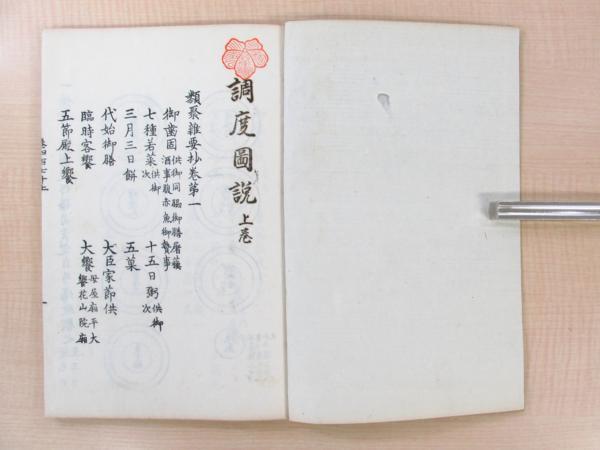 調度圖說 上巻
類聚雜要抄卷第一
御齒固 供御同脇御膳屠蘇
酒事腹赤魚御贄事
七種若菜 供御次 十五日粥 供御次
三月三日餅 五菓
代始御膳 大臣家節供
臨時客饗 大饗 母屋廂平大
饗花山院廂
五節殿上饗
一